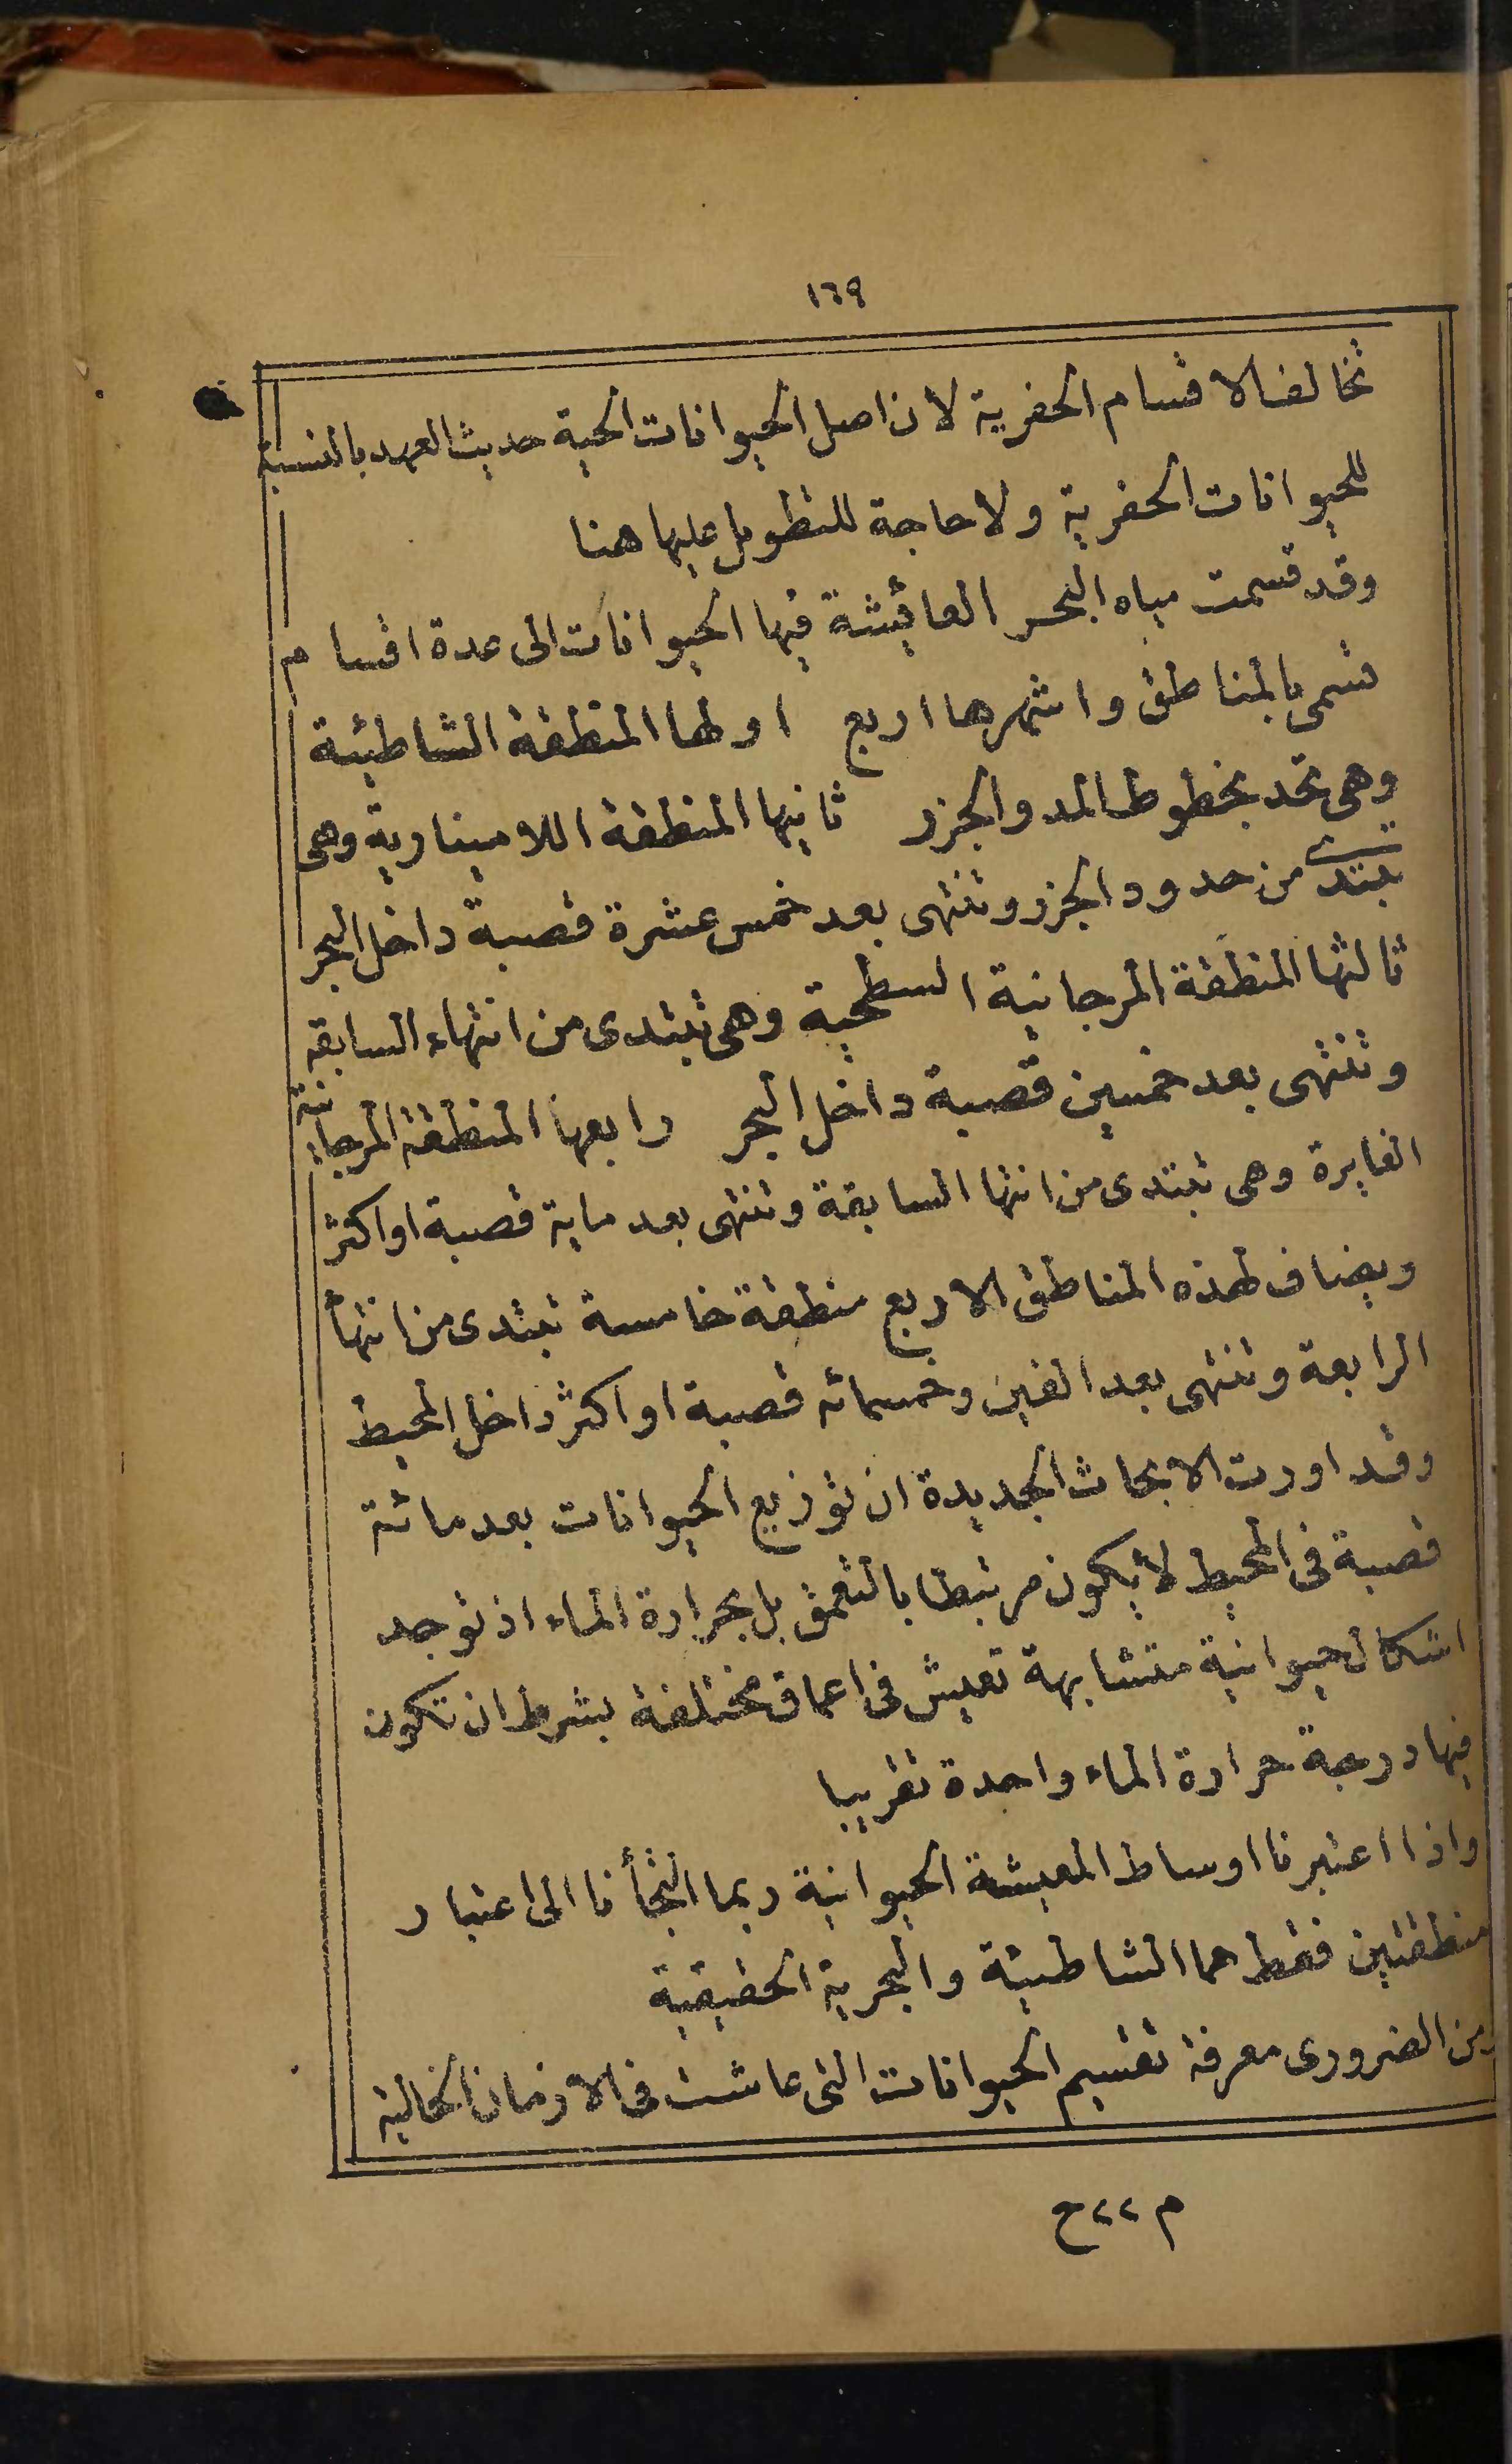 ١٦٩
تخالف الاقسام الحفرية لان اصل الحيوانات الحية حديث العهد بالنسبة
للحيوانات الحفرية ولا حاجة للتطويل عليها هنا
وقد قسمت مياه البحر العائيشة فيها الحيوانات الى عدة اقسام
تسمى بالمناطق واشهرها اربع اولها المنطقة الشاطئية
وهى تحد بخطوط المد والجزر ثانيها المنطقة اللاميناريةوهى
تبتدى من حدود الجزر وتنتهى بعد خمس عشرة قصبة داخل البحر
ثالثها المنطقة المرجانية السطحية وهى تبتدى من انتهاء السابقه
وتنتهى بعد خمسين قصبة داخل البحر رابعها المنطقة المرجانية
الغايرة وهى تبتدى من انتها السابقة وتنتهى بعد ماية قصبة او اكثر
ويضاف لهذه المناطق الاربع منطقة خامسة تبتدى من انتهأ
الرابعة وتنتهى بعد الفين وخمسمائه قصبة او اكثر داخل المحيط
وقد اورت الابحاث الجديدة ان توزيع الحيوانات بعد مائة
قصبة فى المحيط لا يكون مرتبطا بالتعمق بل بحرارة الماء اذ توجد
اشكال حيوانية متشابهة تعيش فى اعماق مختلفة بشرط ان تكون
فيها درجة حرارة الماء واحدة تقريبا
واذا اعتبرنا اوساط المعيشة الحيوانية ربما التجأنا الى اعتبار
منطقتين فقط هما الشاطئية والبحرية الحقيقية
ومن الضرورى معرفة تقسيم الحيوانات التى عاشت فى الازمان الخالية
م ٢٢ ح